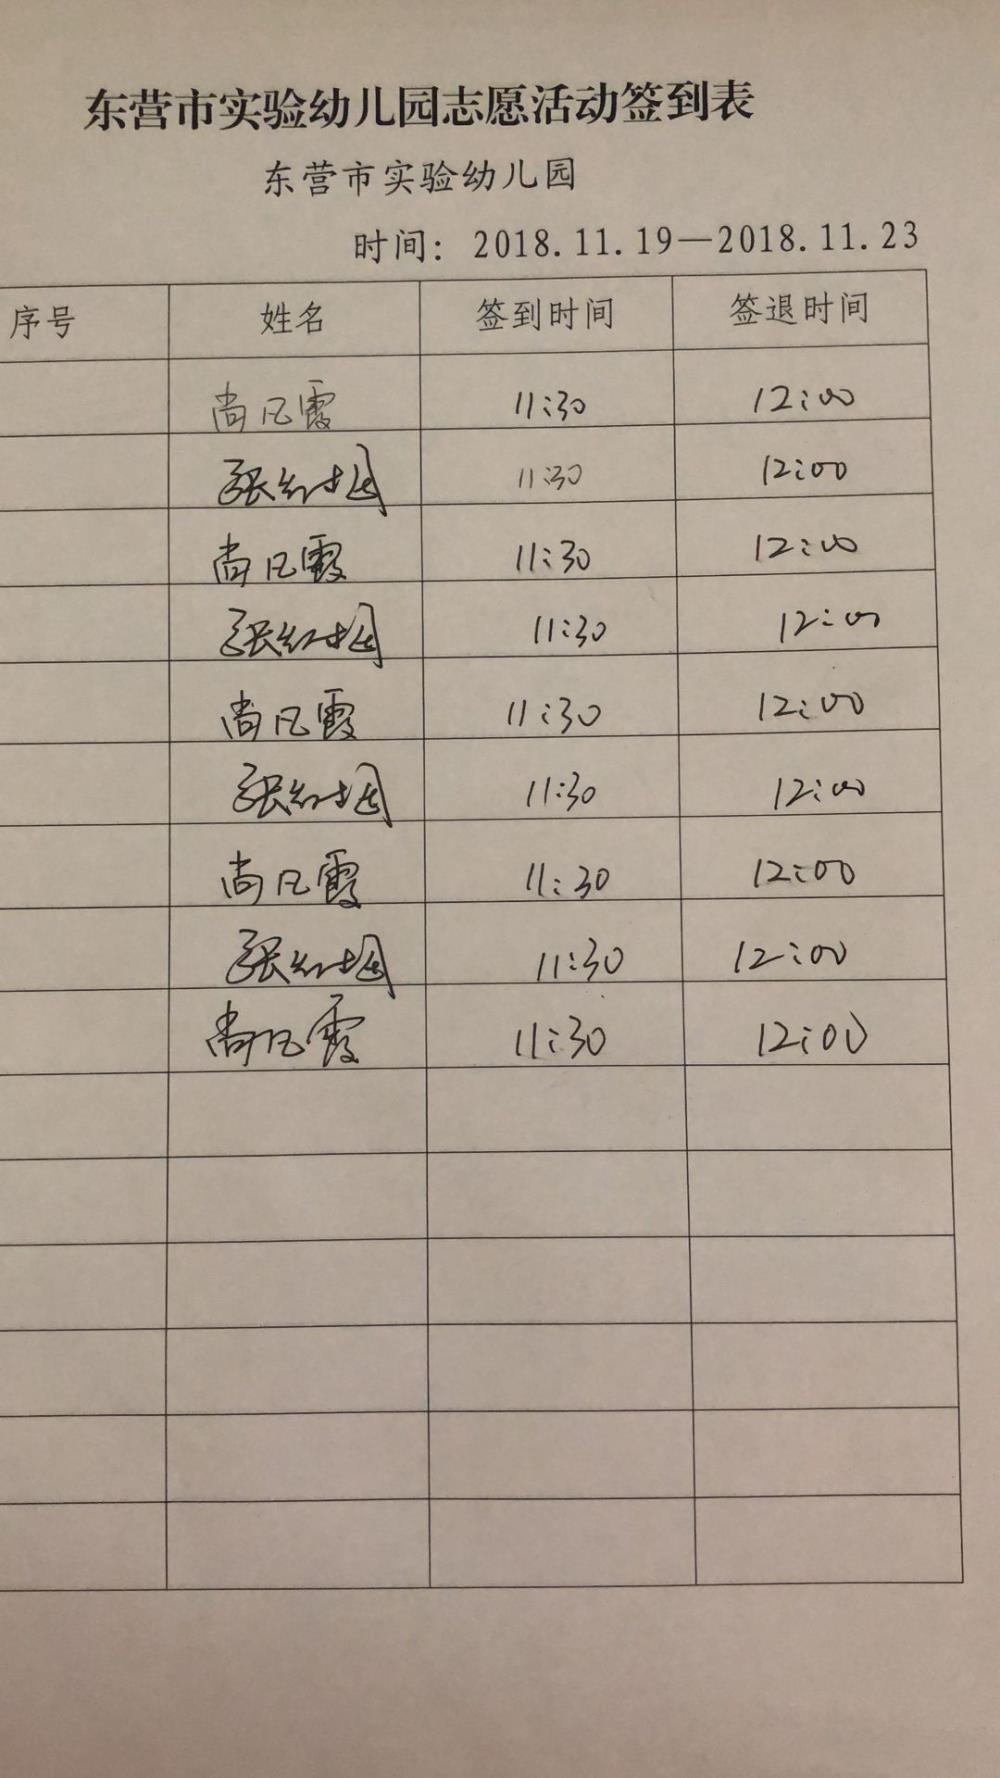 东营市实验幼儿园志愿活动签到表
东营市实验幼儿园
时间：2018.11.19—2018.11.23
序号 姓名 签到时间 签退时间
尚凡霞 11:30 12:00
张红娟 11:30 12:00
尚凡霞 11:30 12:00
张红娟 11:30 12:00
尚凡霞 11:30 12:00
张红娟 11:30 12:00
尚凡霞 11:30 12:00
张红娟 11:30 12:00
尚凡霞 11:30 12:00